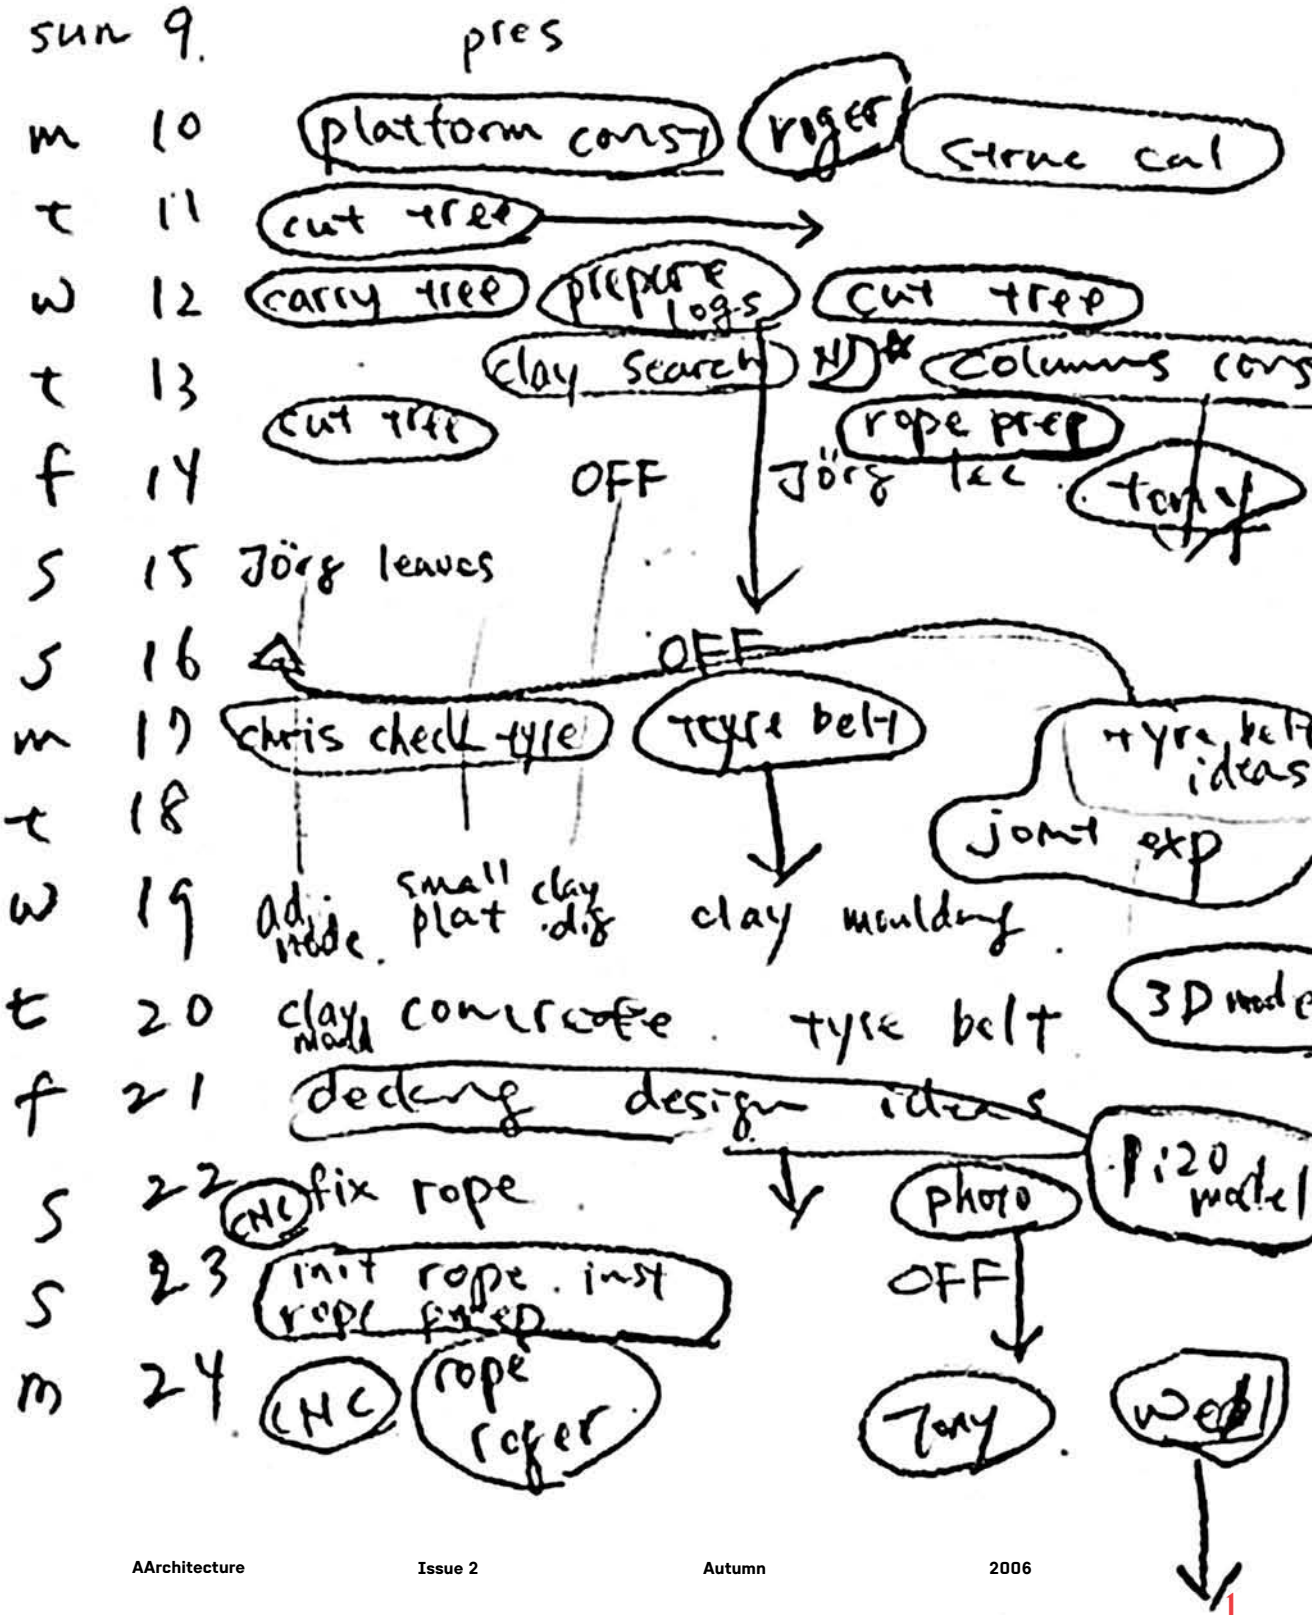 sun 9. pres
m 10 platform const roger struc cal
t 11 cut tree
w 12 carry tree prepare logs cut tree
t 13 clay search columns cons
cut tree rope prep
f 14 OFF Jörg lec tony
s 15 Jörg leaves
s 16 OFF
m 17 chris check tyre tyre belt tyre belt ideas
t 18 joint exp
w 19 adj. node. small plat clay dig clay moulding
t 20 clay concrete tyre belt 3D mode
f 21 decking design ideas
s 22 CNC fix rope photo model
s 23 init rope inst OFF
rope
m 24 CNC rope roger Tony
AArchitecture Issue 2 Autumn 2006
1